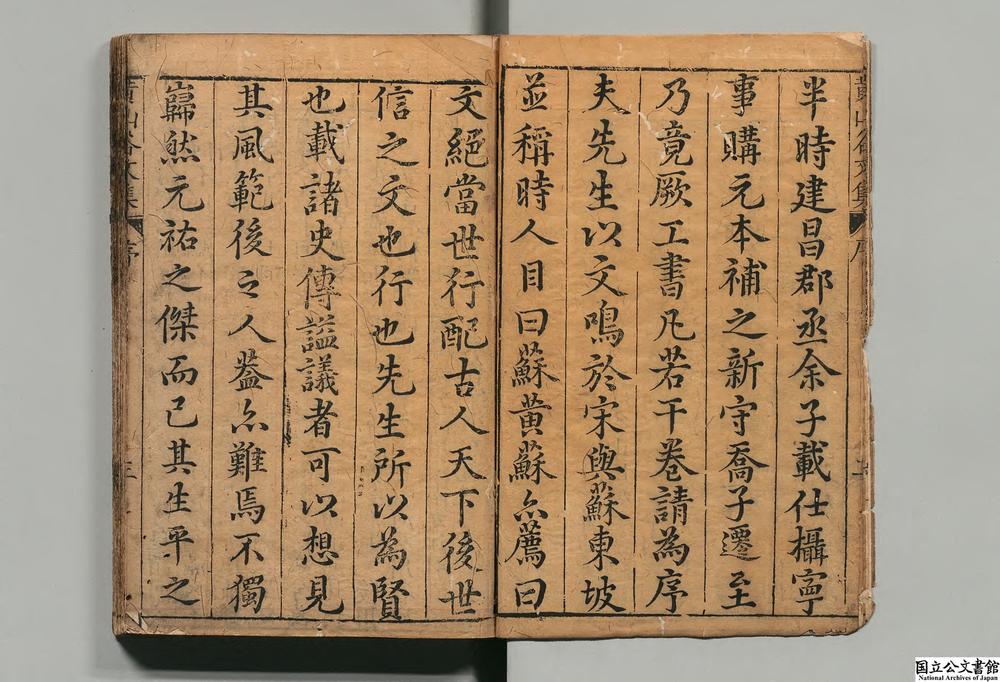 半時建昌郡丞余子載仕攝寧
事購元本補之新守喬子遷至
乃竟厥工書凡若干卷請為序
夫先生以文鳴於宋與蘇東坡
並稱時人目曰蘇黃蘇亦薦曰
文絕當世行配古人天下後世
信之文也行也先生所以為賢
也載諸史傳謚議者可以想見
其風範後之人蓋亦難焉不獨
巋然元祐之傑而已其生平之
黃山谷文集
序
三
国立公文書館
National Archives of Japan